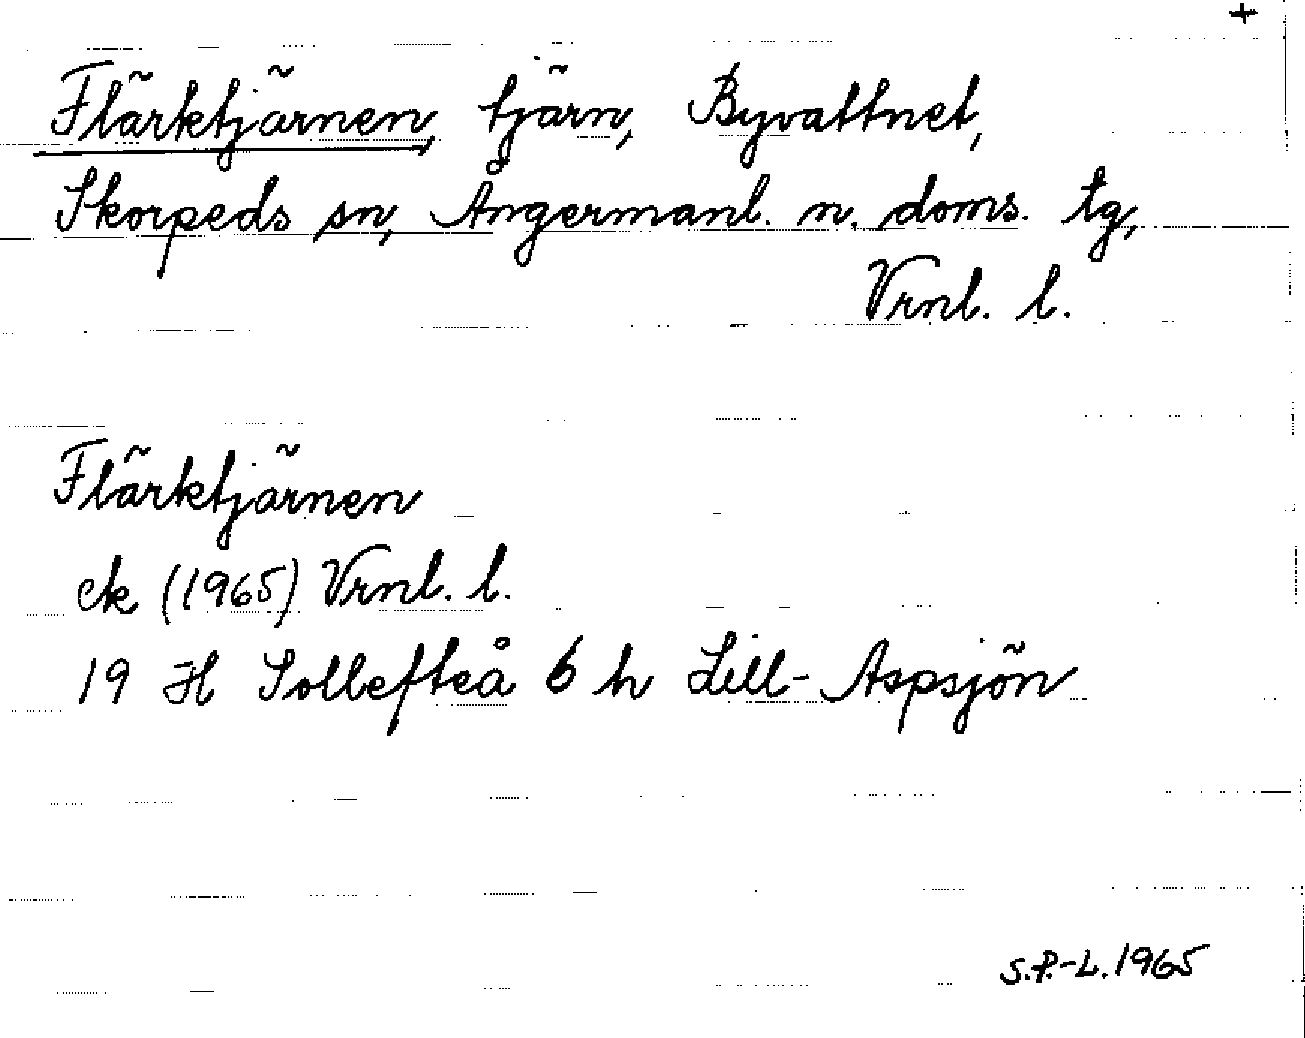 +
Flärktjärnen, tjärn, Byvattnet,
Skorpeds sn, Ångermanl. n. doms. tg,
Vrnl. l.
Flärktjärnen
ek (1965) Vrnl. l.
19 H Sollefteå 6 h Lill-Aspsjön
S.P.-L. 1965